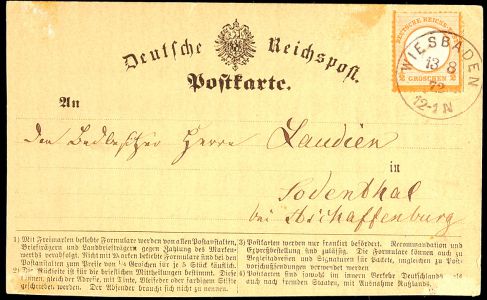 Deutsche Reichspost.
Postkarte.
DEUTSCHE REICHS-POST
½ GROSCHEN ½
WIESBADEN
13 8
72
12-1 N
An
den Badbesitzer Herrn Laudien
in
Sodenthal
bei Aschaffenburg
1) Mit Freimarken beklebte Formulare werden von allen Postanstalten,
Briefträgern und Landbriefträgern gegen Zahlung des Marken-
werths verabfolgt. Nicht mit Marken beklebte Formulare sind bei den
Postanstalten zum Preise von ¼ Groschen für je 5 Stück käuflich.
2) Die Rückseite ist für die brieflichen Mittheilungen bestimmt. Diese
können, gleich der Adresse, mit Tinte, Bleifeder oder farbigem Stifte
geschrieben werden. Der Absender braucht sich nicht zu nennen.
3) Postkarten werden nur frankirt befördert. Recommandation und
Expressbestellung sind zulässig. Die Formulare können auch zu
Begleitadressen und Signaturen für Packete, ingleichen zu Post-
vorschusssendungen verwendet werden.
4) Postkarten sind sowohl im innern Verkehr Deutschlands als
auch nach fremden Staaten, mit Ausnahme Russlands,